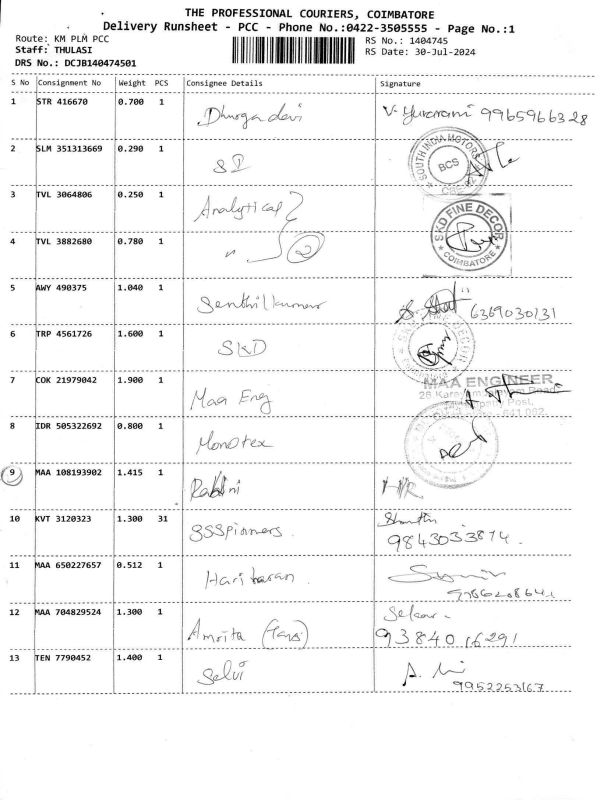 THE PROFESSIONAL COURIERS, COIMBATORE
Delivery Runsheet - PCC - Phone No.:0422-3505555 - Page No.:1
Route: KM PLM PCC
RS No.: 1404745
Staff: THULASI
RS Date: 30-Jul-2024
DRS No.: DCJB140474501
S No Consignment No Weight PCS Consignee Details Signature
1 STR 416670 0.700 1 Dhurga devi V. Yuvarani 9965966328
2 SLM 351313669 0.290 1 SI
SOUTH INDIA MOTORS
BCS
3 TVL 3064806 0.250 1 Analytical
SKD FINE DECOR
COIMBATORE
4 TVL 3882680 0.780 1 " 2
5 AWY 490375 1.040 1 Senthilkumar 6369030131
6 TRP 4561726 1.600 1 SKD
7 COK 21979042 1.900 1 Maa Eng
MAA ENGINEER
8 IDR 505322692 0.800 1 Monotex
9 MAA 108193902 1.415 1
10 KVT 3120323 1.300 31 SSSpinners 9843033874
11 MAA 650227657 0.512 1 Hariharan
12 MAA 704829524 1.300 1 Amrita Sekar
9384016291
13 TEN 7790452 1.400 1 Selvi
9952253167